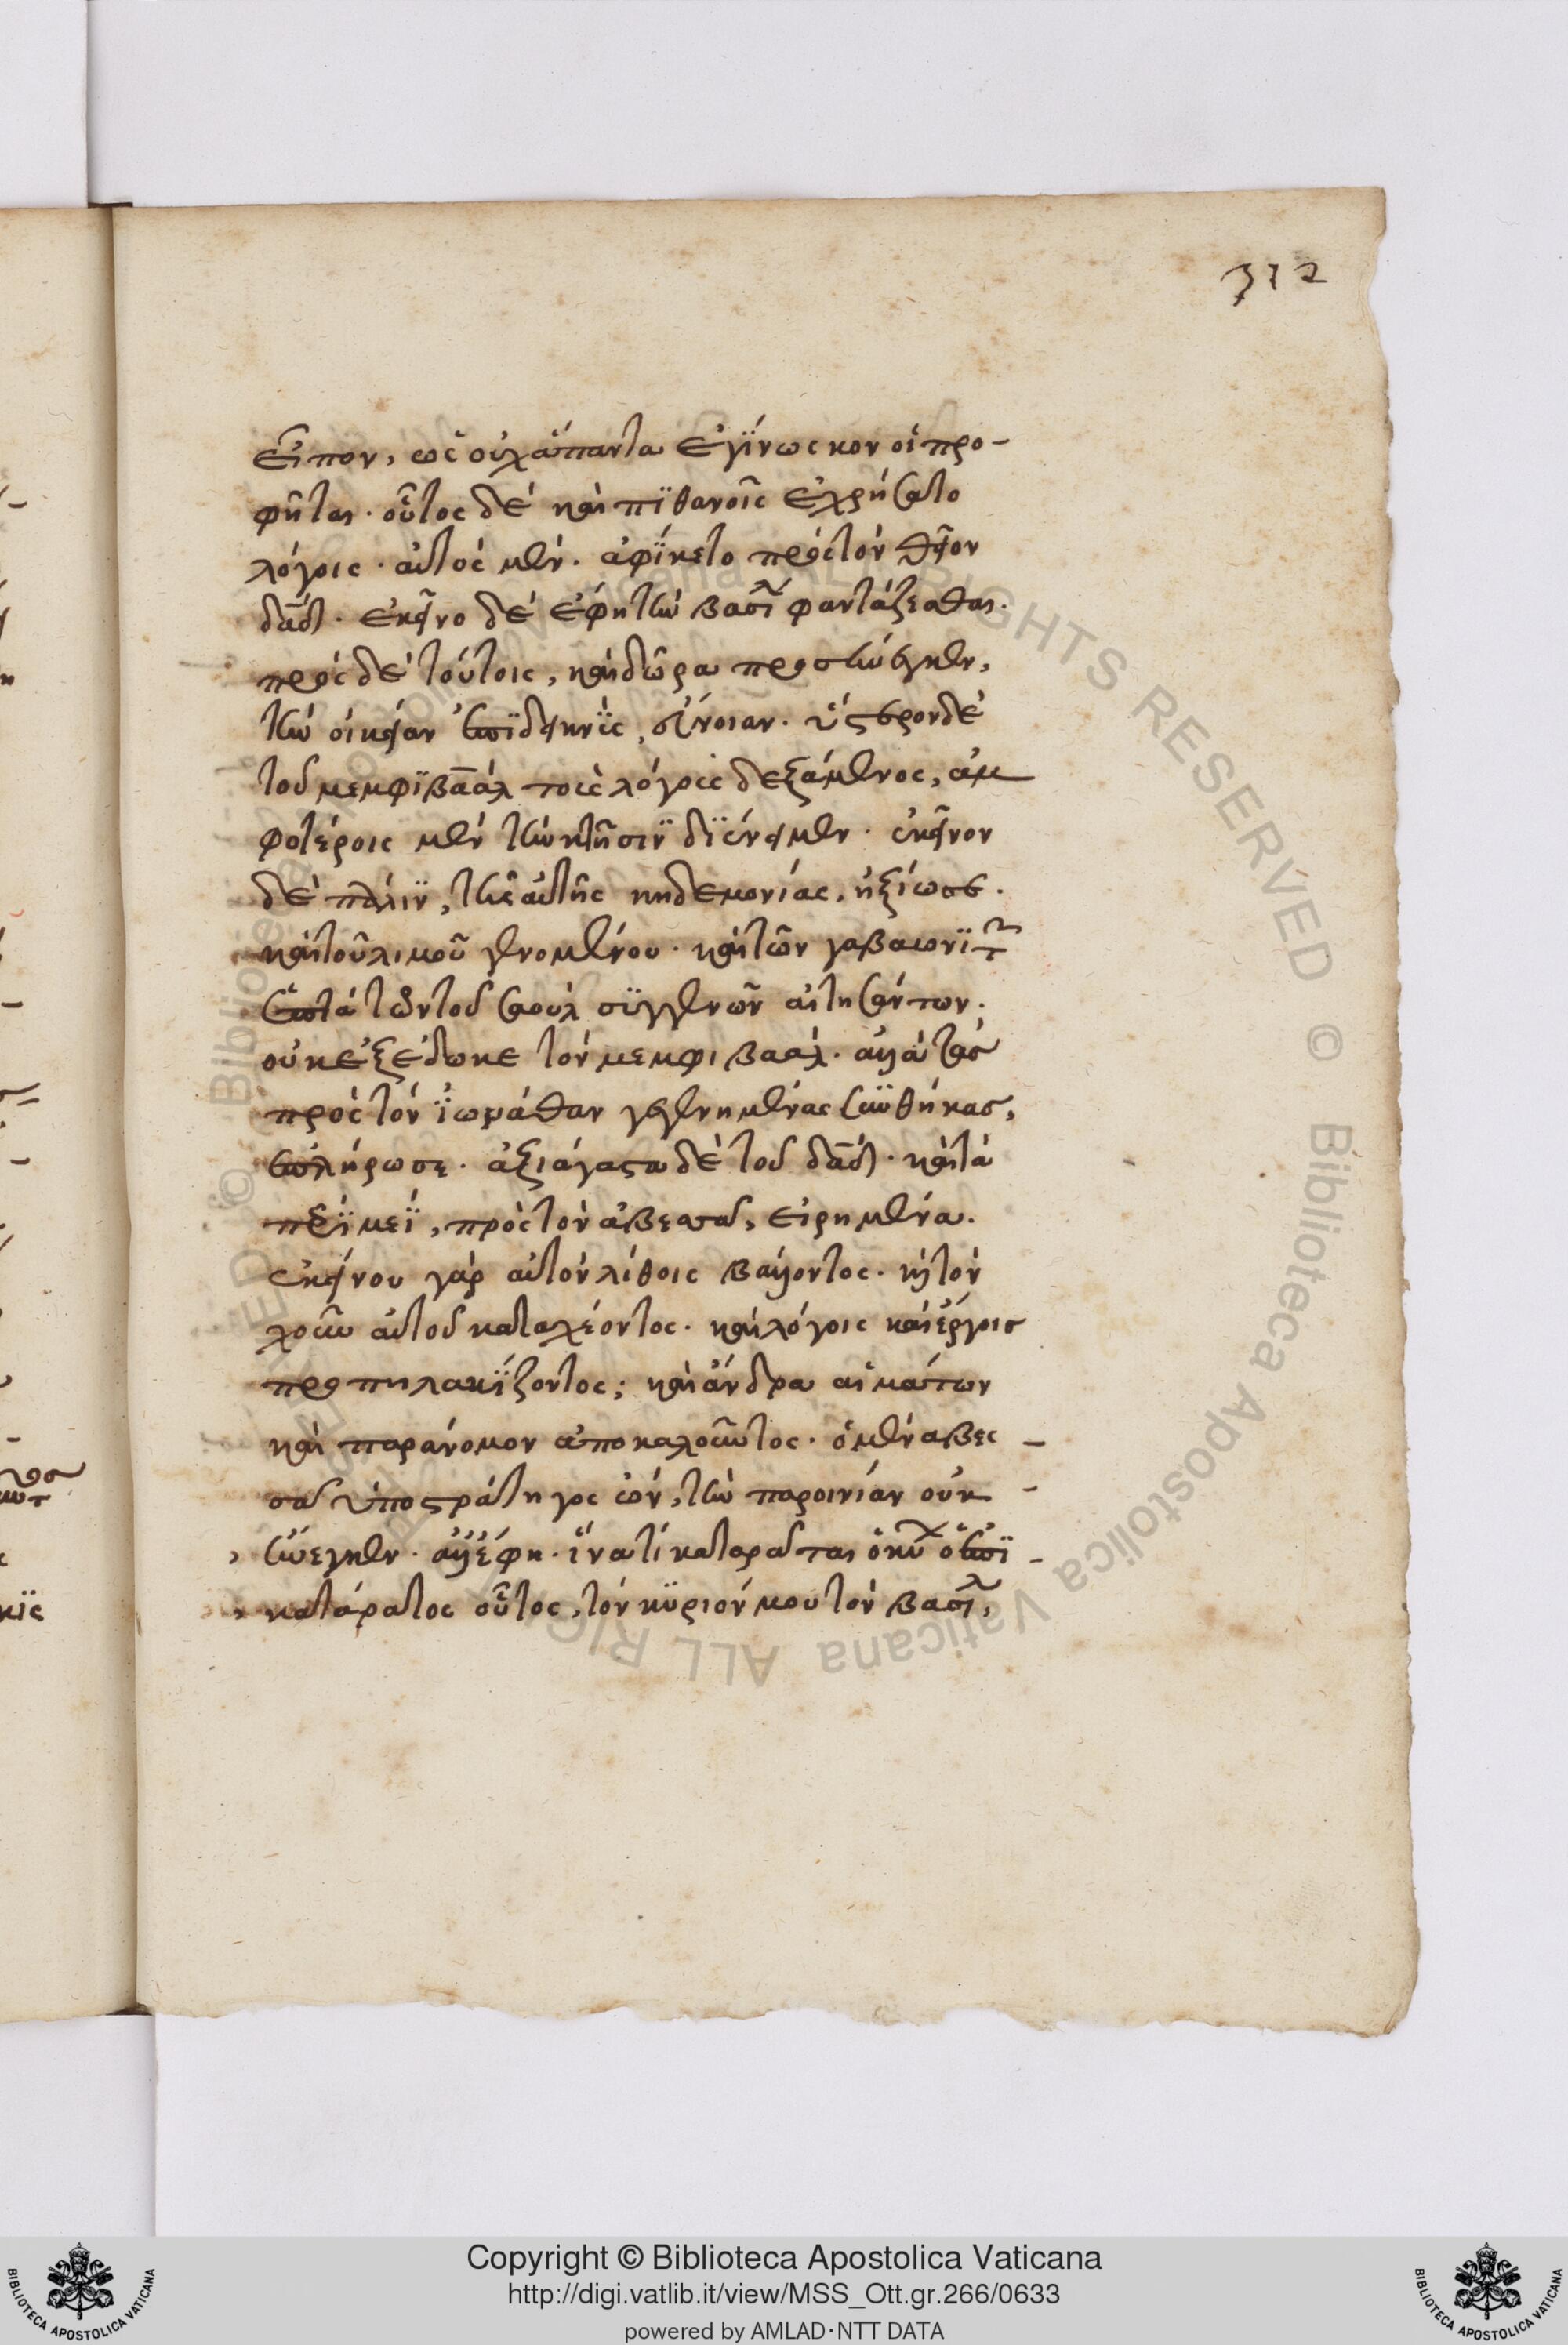 312
εἶπον, ὡς οὐχ ἅπαντα ἐγίνωσκον οἱ προ-
φῆται· οὗτος δὲ καὶ πϊθανοῖς ἐχρήσατο
λόγοις· αὐτὸς μὲν· ἀφίκετο πρὸς τὸν θεῖον
δᾱδ· ἐκεῖνο δὲ ἔφη τὴν βασιλ φαντάζεσθαι·
πρὸς δὲ τούτοις, καὶ δῶρα προσενήνεγκεν,
τὴν οἰκείαν ἐπϊδεικνὺς, εὔνοιαν· ὕστερον δὲ
τοῦ μεμφϊβᾱάλ τοὺς λόγους δεξάμενος, ἀμ
φοτέροις μὲν τὴν κτῆσιν δϊένειμεν· ἐκεῖνον
δὲ πάλιν, τῆς αὐτῆς κηδεμονίας, ἠξίωσε·
καὶ τοῦ λιμοῦ γενομένου· καὶ τῶν γαβαωνϊτ
ἑπτὰ τῶν τοῦ σαοὺλ συγγενῶν αἰτησάντων·
οὐκ ἐξέδωκε τὸν μεμφιβαάλ· ἀλλὰ τὰς
πρὸς τὸν ϊωνάθαν γεγενημένας συνθήκας,
ἐπλήρωσε· ἀξιάγαστα δὲ τοῦ δᾱδ· καὶ τὰ
περὶ σεμεϊ, πρὸς τὸν ἀβεσσὰ, εἰρημένα·
ἐκείνου γὰρ αὐτὸν λίθοις βάλλοντος· καὶ τὸν
χοῦν αὐτοῦ καταχέοντος· καὶ λόγοις καὶ ἔργοις
προπηλακίζοντος; καὶ ἄνδρα αἱμάτων
καὶ παράνομον ἀποκαλοῦντος· ὁ μὲν ἀβεσ -
σὰ ὑποστράτηγος ὢν, τὴν παροινίαν οὐκ -
, ἤνεγκεν· ἀλλ' ἔφη· ἵνα τί καταρᾶται ὁ κύων ὁ ἐπι -
, κατάρατος οὗτος, τὸν κύριόν μου τὸν βασιλ,
Copyright © Biblioteca Apostolica Vaticana
http://digi.vatlib.it/view/MSS_Ott.gr.266/0633
powered by AMLAD·NTT DATA